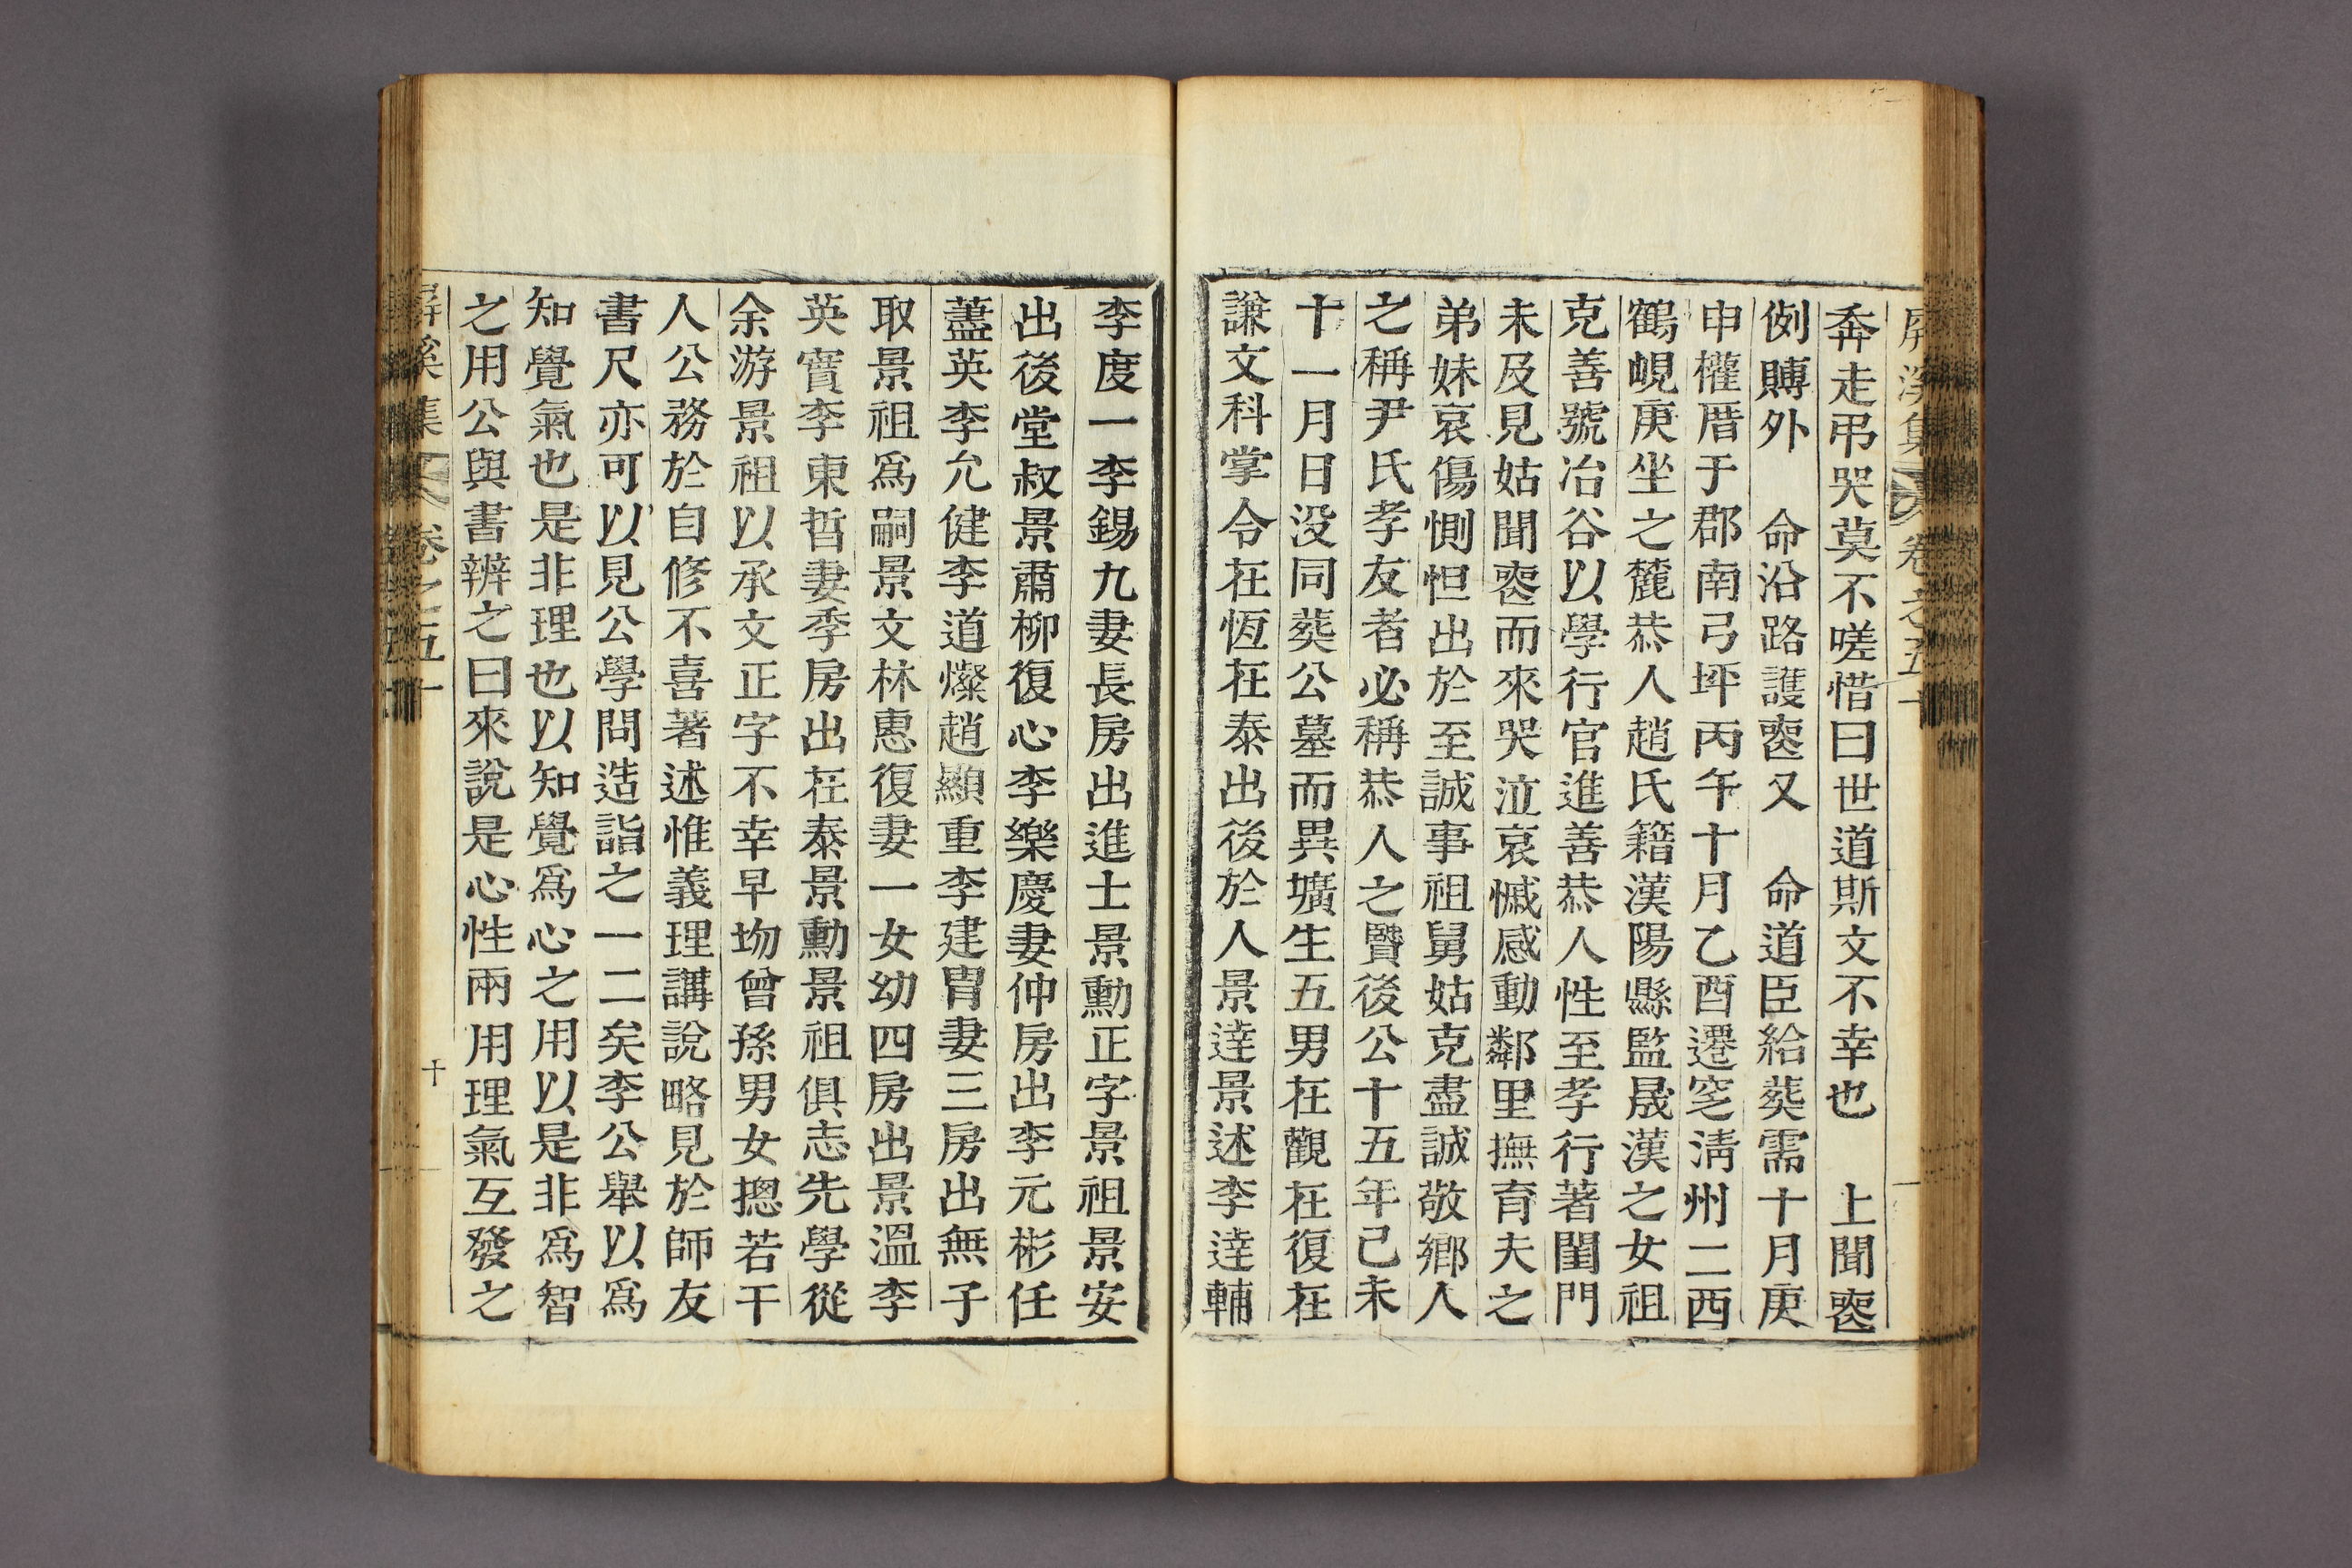 屛溪集 卷之五十
奔走弔哭莫不嗟惜曰世道斯文不幸也 上聞喪
例賻外 命沿路護喪又 命道臣給葬需十月庚
申權厝于郡南弓坪丙午十月乙酉遷窆淸州二西
鶴峴庚坐之麓恭人趙氏籍漢陽縣監晟漢之女祖
克善號冶谷以學行官進善恭人性至孝行著閨門
未及見姑聞喪而來哭泣哀慽感動鄰里撫育夫之
弟妹哀傷惻怛出於至誠事祖舅姑克盡誠敬鄕人
之稱尹氏孝友者必稱恭人之賢後公十五年己未
十一月日没同葬公墓而異壙生五男在觀在復在
謙文科掌令在恆在泰出後於人景達景述李達輔
李度一李錫九妻長房出進士景勳正字景祖景安
出後堂叔景肅柳復心李樂慶妻仲房出李元彬任
藎英李允健李道燦趙顯重李建胄妻三房出無子
取景祖爲嗣景文林惪復妻一女幼四房出景溫李
英賓李東哲妻季房出在泰景勳景祖俱志先學從
余游景祖以承文正字不幸早歾曾孫男女摠若干
人公務於自修不喜著述惟義理講說略見於師友
書尺亦可以見公學問造詣之一二矣李公舉以爲
知覺氣也是非理也以知覺爲心之用以是非爲智
之用公與書辨之曰來說是心性兩用理氣互發之
屛溪集 卷之五十 十